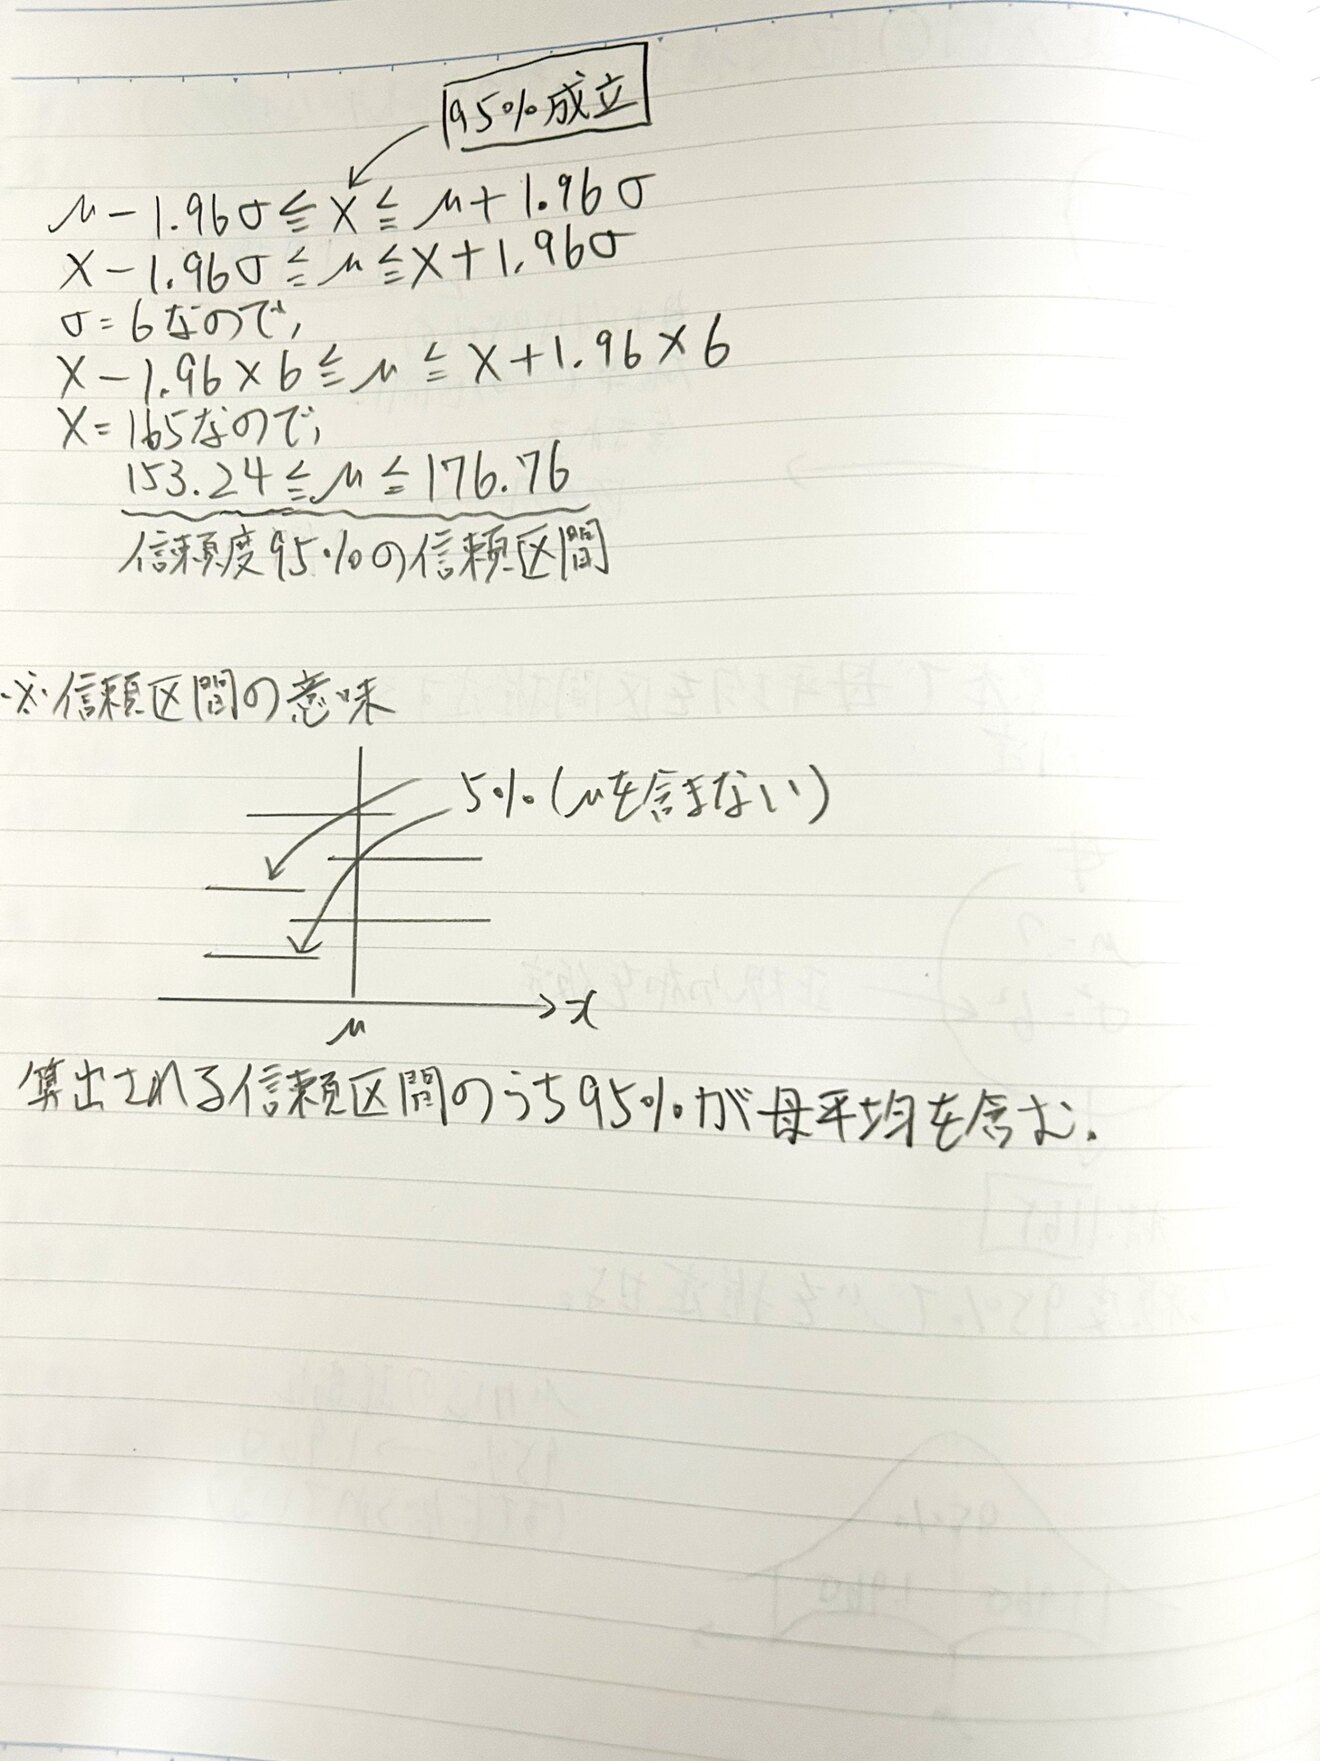 95%成立
μ-1.96σ≦X≦μ+1.96σ
X-1.96σ≦μ≦X+1.96σ
σ=6なので,
X-1.96×6≦μ≦X+1.96×6
X=165なので,
153.24≦μ≦176.76
信頼度95%の信頼区間
※信頼区間の意味
5%(μを含まない)
x
μ
算出される信頼区間のうち95%が母平均を含む.